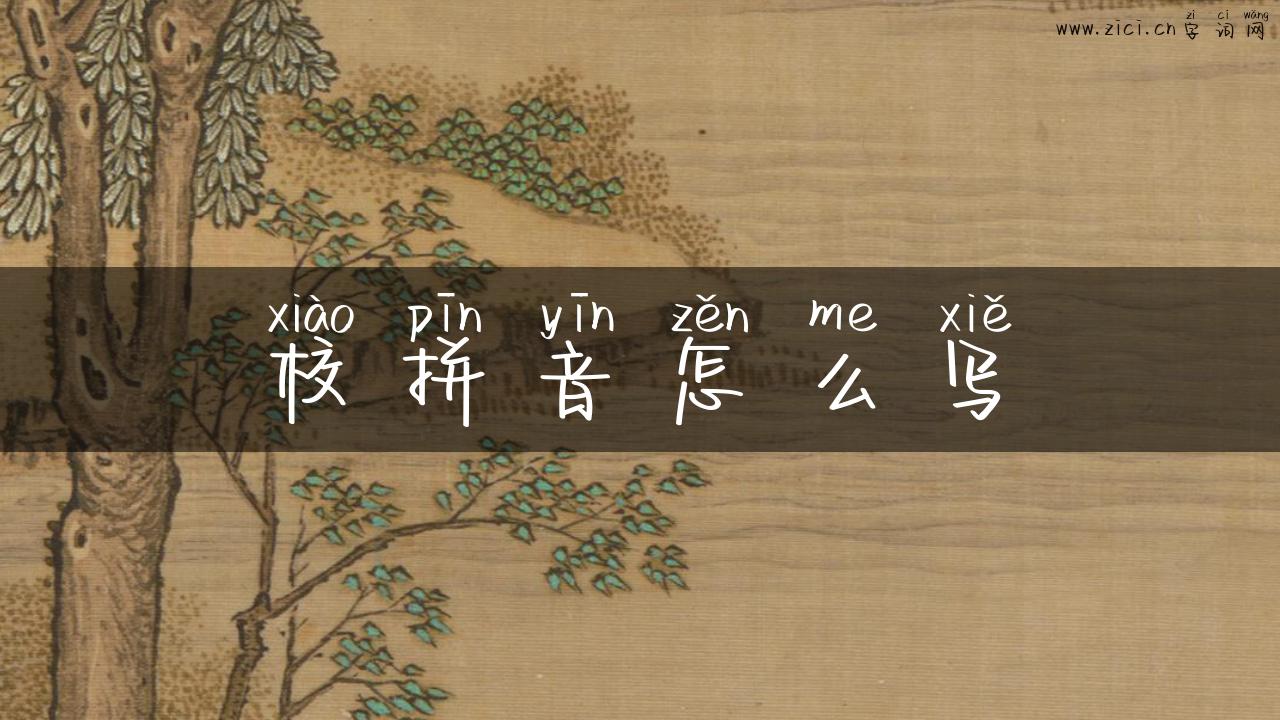 zì cí wǎng
www.zici.cn 字 词 网
xiào pīn yīn zěn me xiě
校 拼 音 怎 么 写